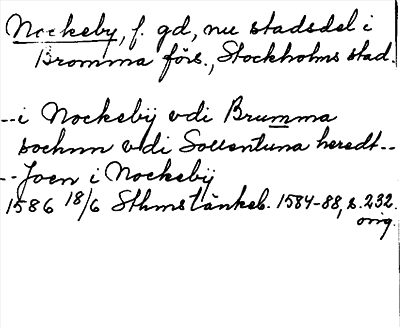 Nockeby, f. gd, nu stadsdel i
Bromma förs., Stockholms stad.
--i Nockebÿ vdi Brumma
sochnn vdi Sollentuna heredt--
--Joen i Nockebÿ
1586 18/6 Sthmstänkeb. 1584-88, s. 232.
orig.